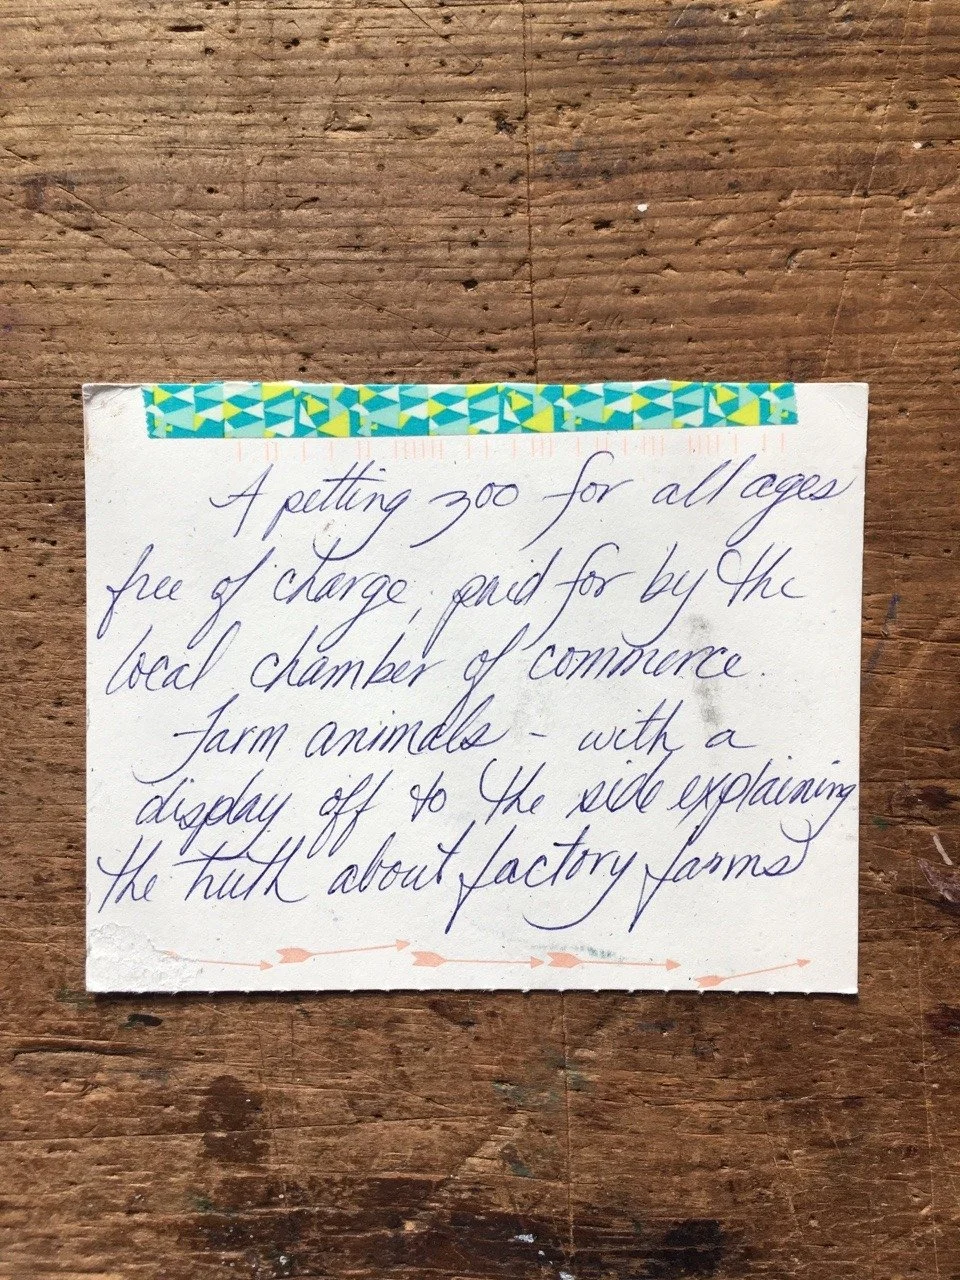 A petting zoo for all ages
free of charge, paid for by the
local chamber of commerce.
Farm animals - with a
display off to the side explaining
the truth about factory farms